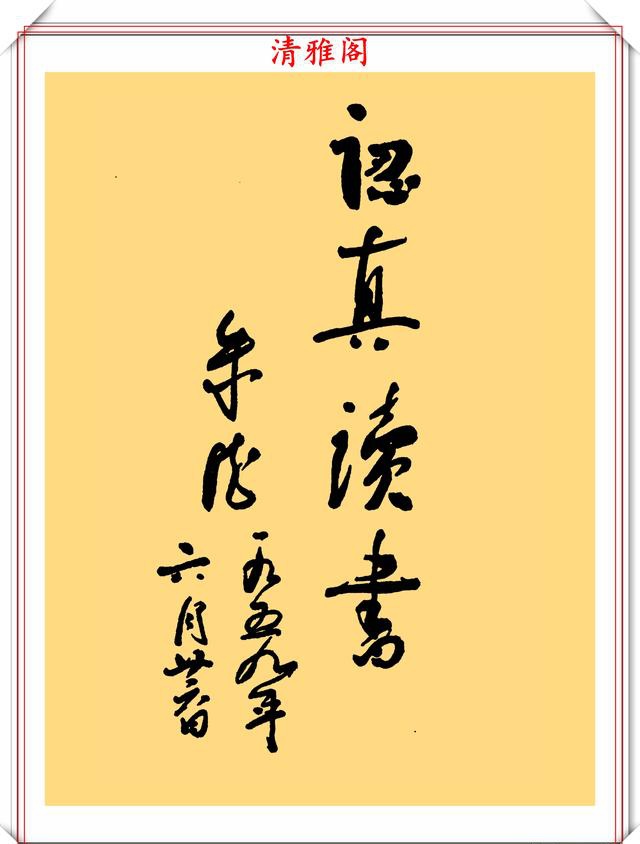 清雅阁
認真讀書
朱德
一九五九年
六月廿六日